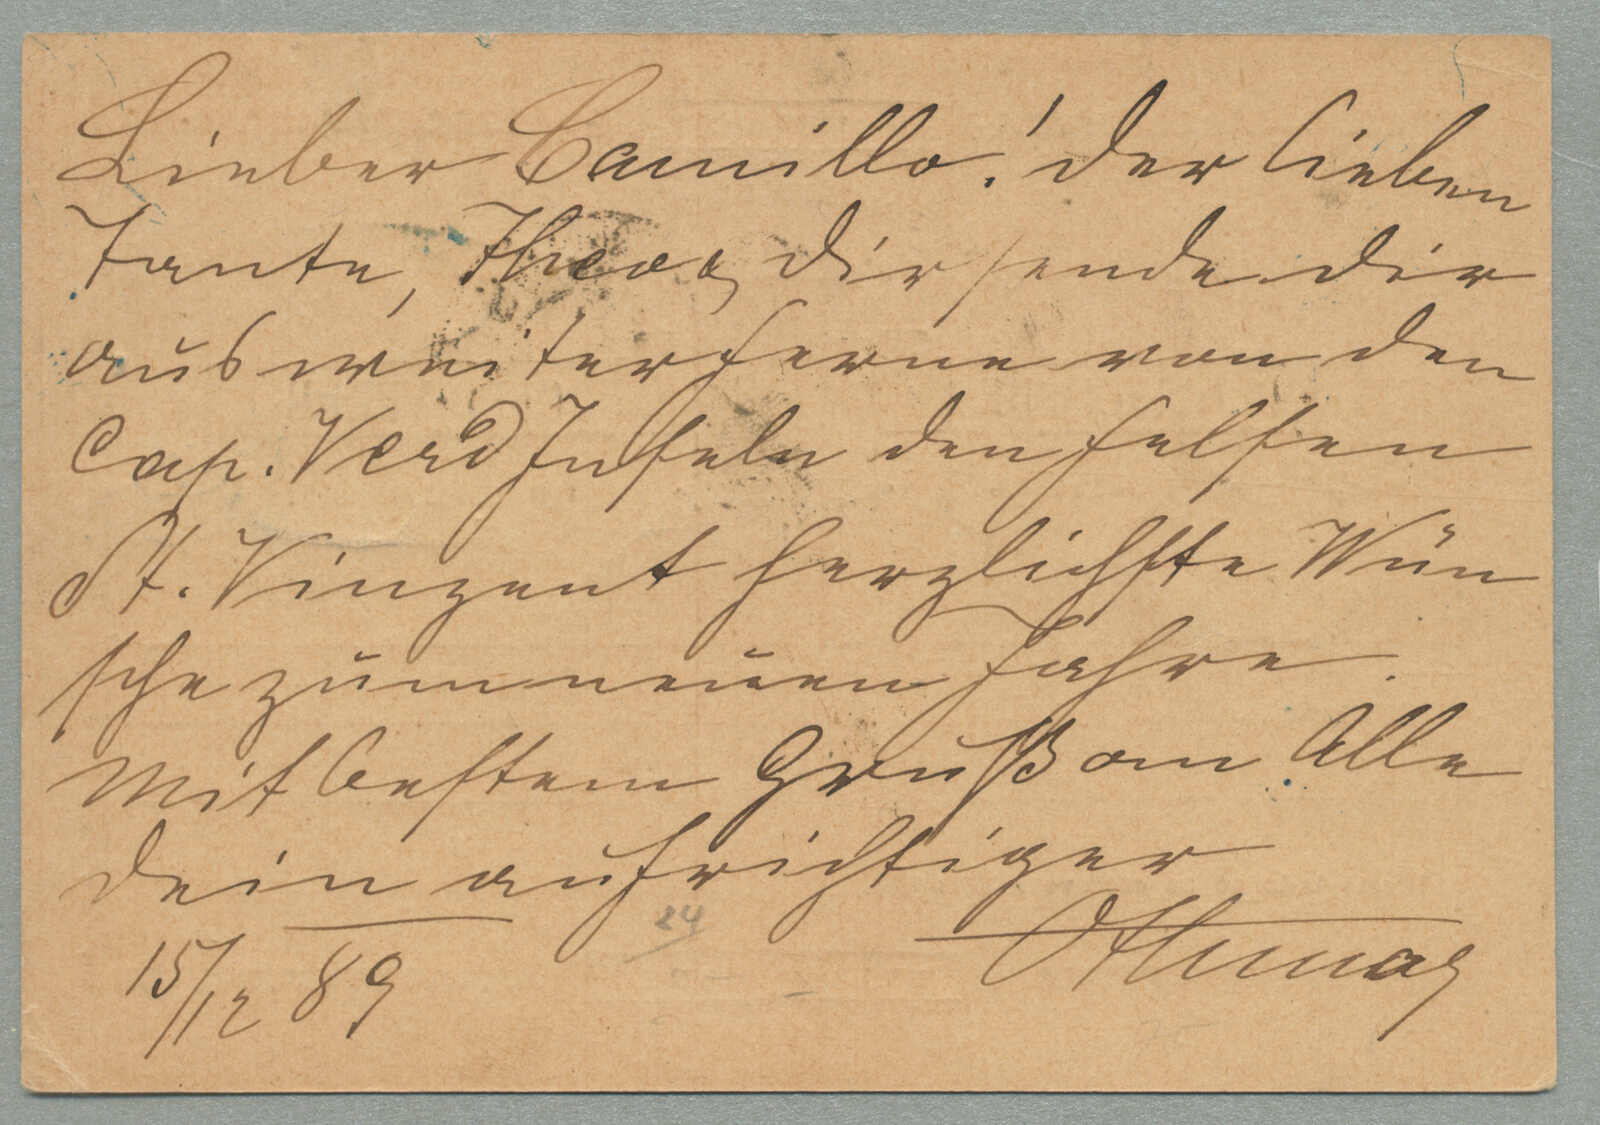 Lieber Camillo! Der lieben
Tante, Theo & dir sende dir
aus weiter Ferne von den
Cap. Verd Inseln den Felsen
St. Vinzent herzlichste Wün
sche zum neuen Jahre.
Mit bestem Gruß an Alle
dein aufrichtiger
Othmar
15/12 89
24